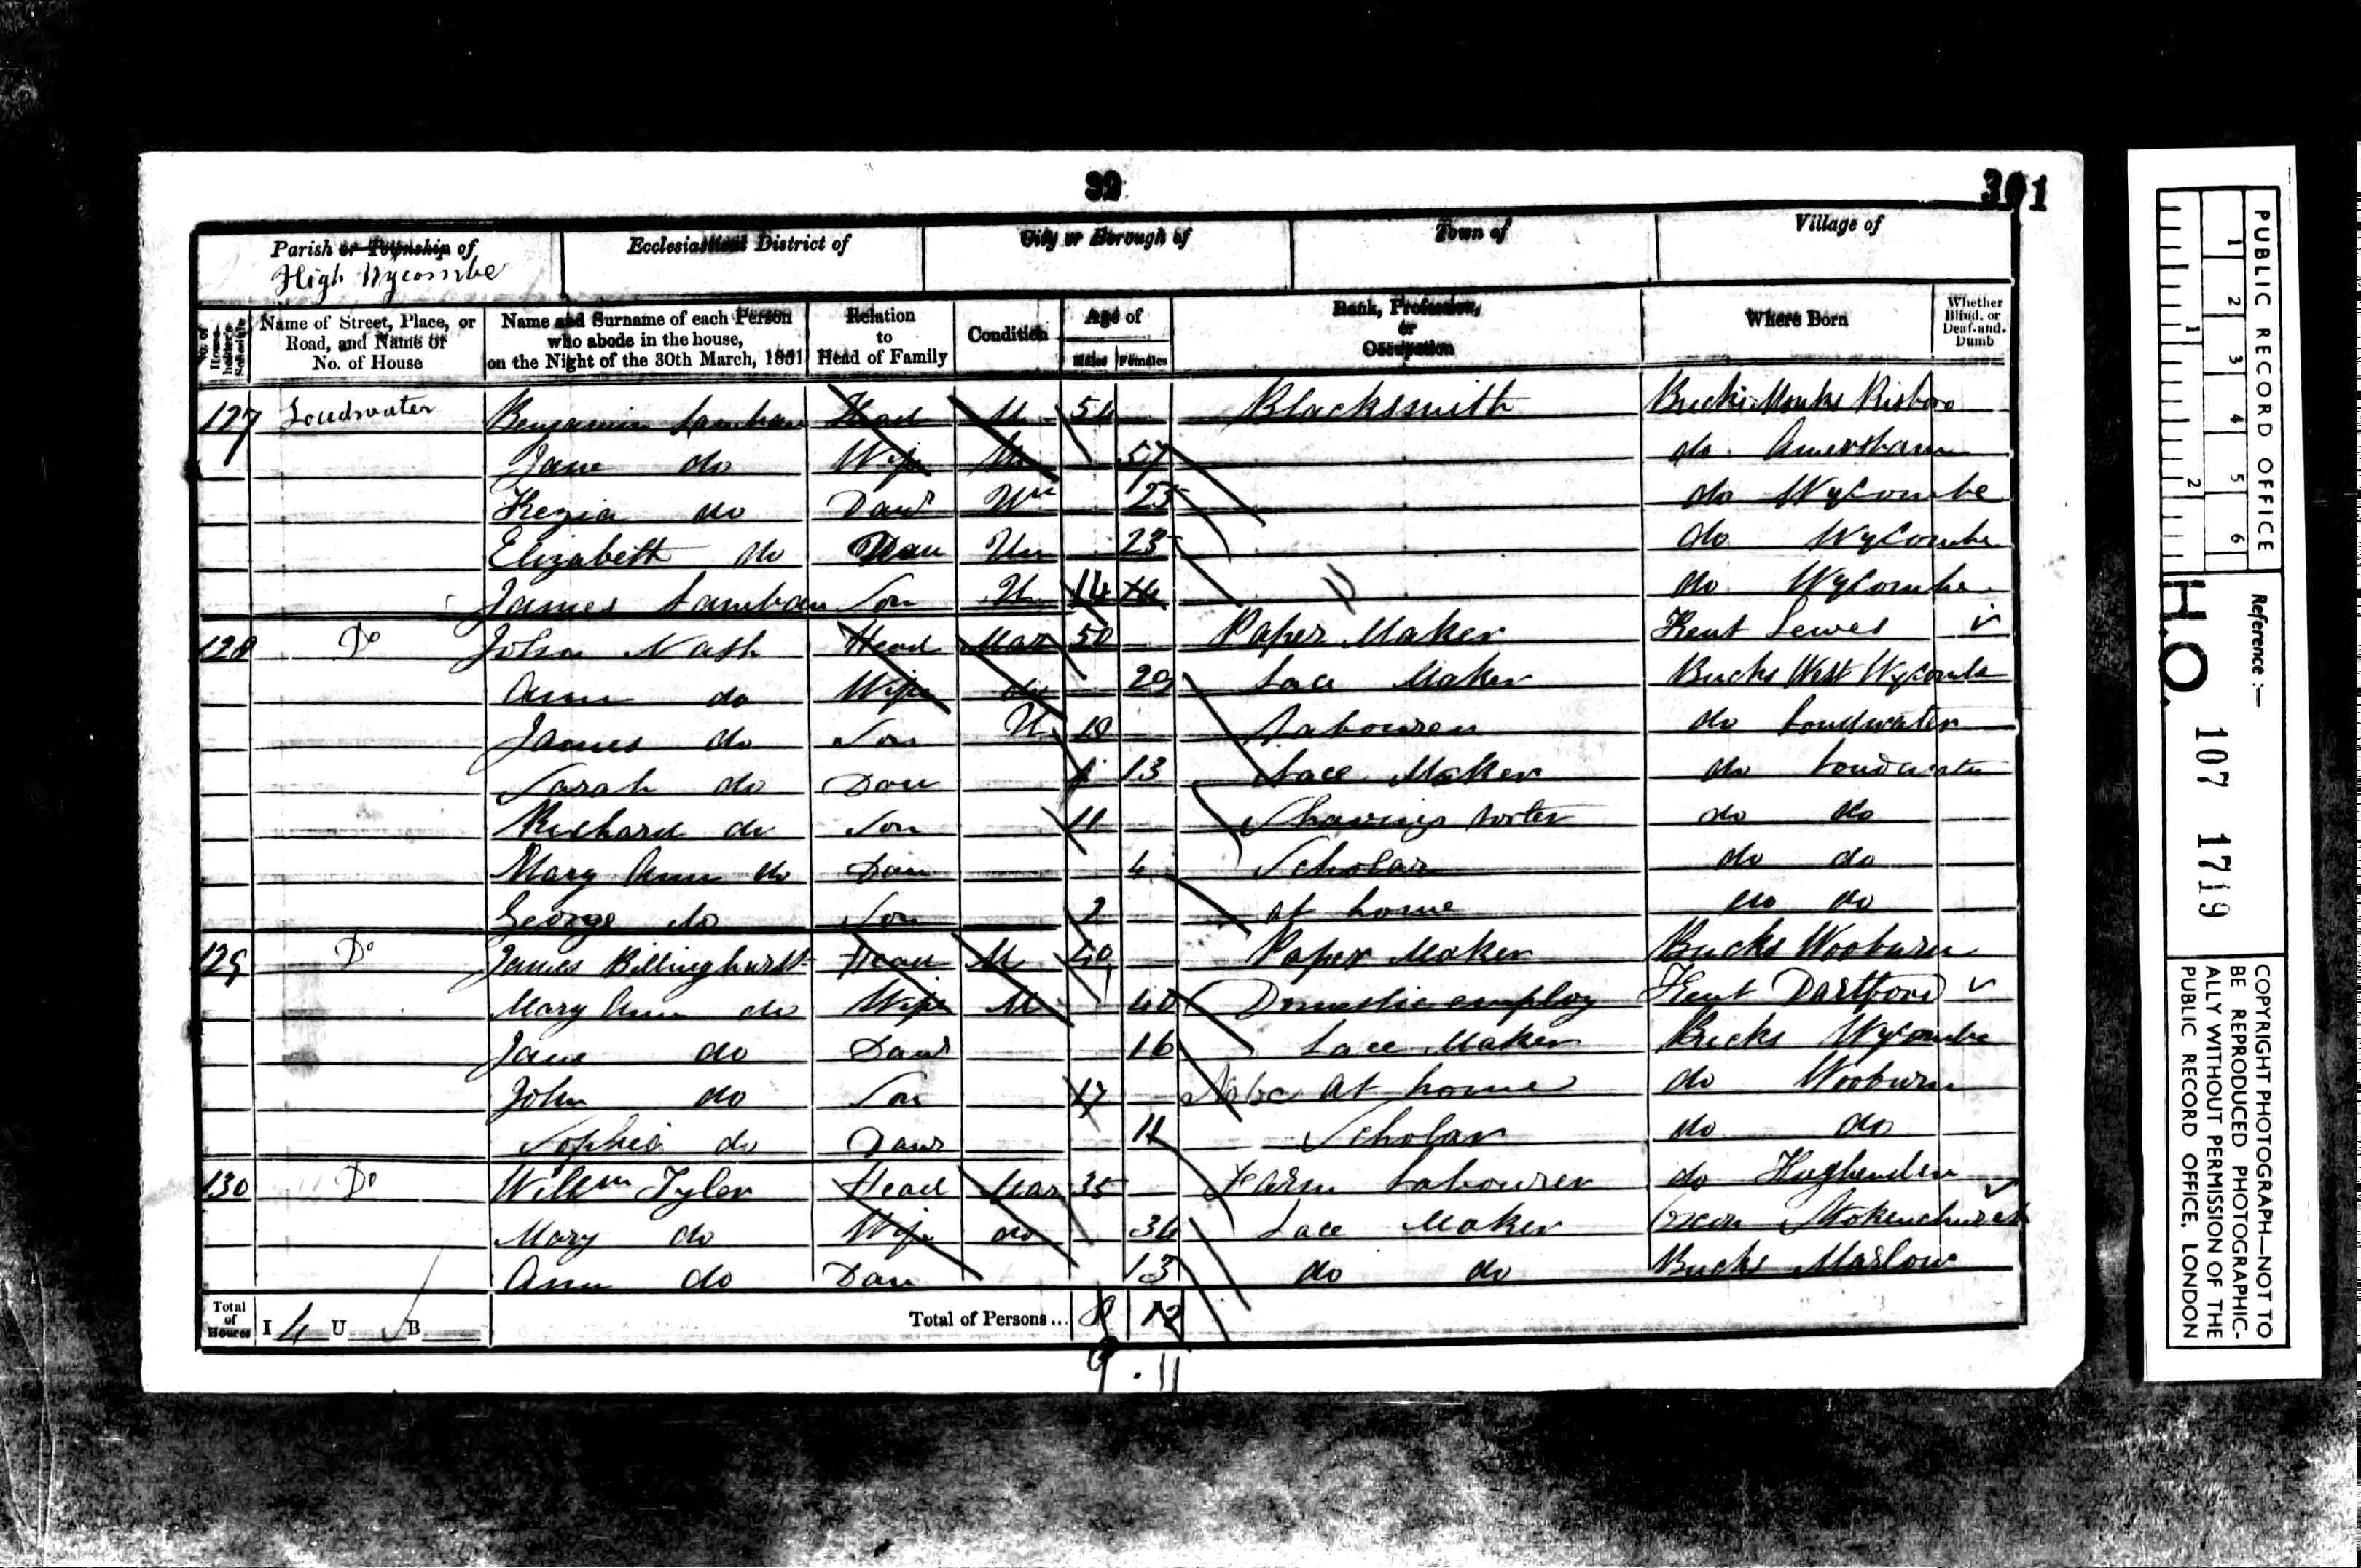 39
301
Parish or Township of
High Wycombe
Ecclesiastical District of
City or Borough of
Town of
Village of
No. of House-holder's Schedule
Name of Street, Place, or Road, and Name or No. of House
Name and Surname of each Person who abode in the house, on the Night of the 30th March, 1851
Relation to Head of Family
Condition
Age of
Males Females
Rank, Profession, or Occupation
Where Born
Whether Blind, or Deaf-and-Dumb
127 Loudwater Benjamin Head M 54 Blacksmith Bucks Monks Risboro
Jane do Wife M 57 do Amersham
Kezia do Daur Un 25 do Wycombe
Elizabeth do Dau Un 23 do Wycombe
James Son U 14 14 do Wycombe
128 Do John Nash Head Mar 50 Paper Maker Kent Lewes
Ann do Wife do 29 Lace Maker Bucks West Wycombe
James do Son U 18 Labourer do Loudwater
Sarah do Dau 13 Lace Maker do Loudwater
Richard do Son 11 do do
Mary Ann do Dau 4 Scholar do do
George do Son 2 at home do do
129 Do James Billinghurst Head M 40 Paper Maker Bucks Wooburn
Mary Ann do Wife M 40 Domestic employ Kent Dartford
Jane do Daur 16 Lace Maker Bucks Wycombe
John do Son 17 at home do Wooburn
Sophia do Daur 11 Scholar do do
130 Do Willm Tyler Head Mar 35 Farm Labourer do Hughenden
Mary do Wife do 36 Lace Maker Oxon Stokenchurch
Ann do Dau 13 do do Bucks Marlow
Total of Houses I 4 U B
Total of Persons... 8 12
9 . 11
PUBLIC RECORD OFFICE
1 2 3 4 5 6
1 2
Reference :—
H.O. 107 1719
COPYRIGHT PHOTOGRAPH—NOT TO
BE REPRODUCED PHOTOGRAPHIC-
ALLY WITHOUT PERMISSION OF THE
PUBLIC RECORD OFFICE, LONDON